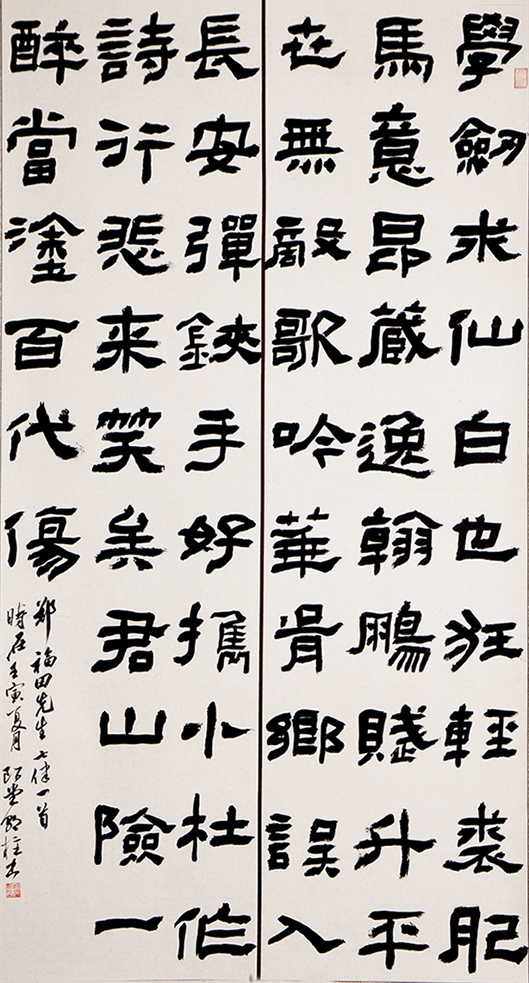 學劒求仙白也狂輕裘肥
馬意昂藏逸翰鵬賦升平
在無敵歌吟華胥鄉誤入
長安彈鋏手好攜小杜作
詩行悲來笑矣君山險一
醉當塗百代傷
郑福田先生七律一首
時在壬寅夏月